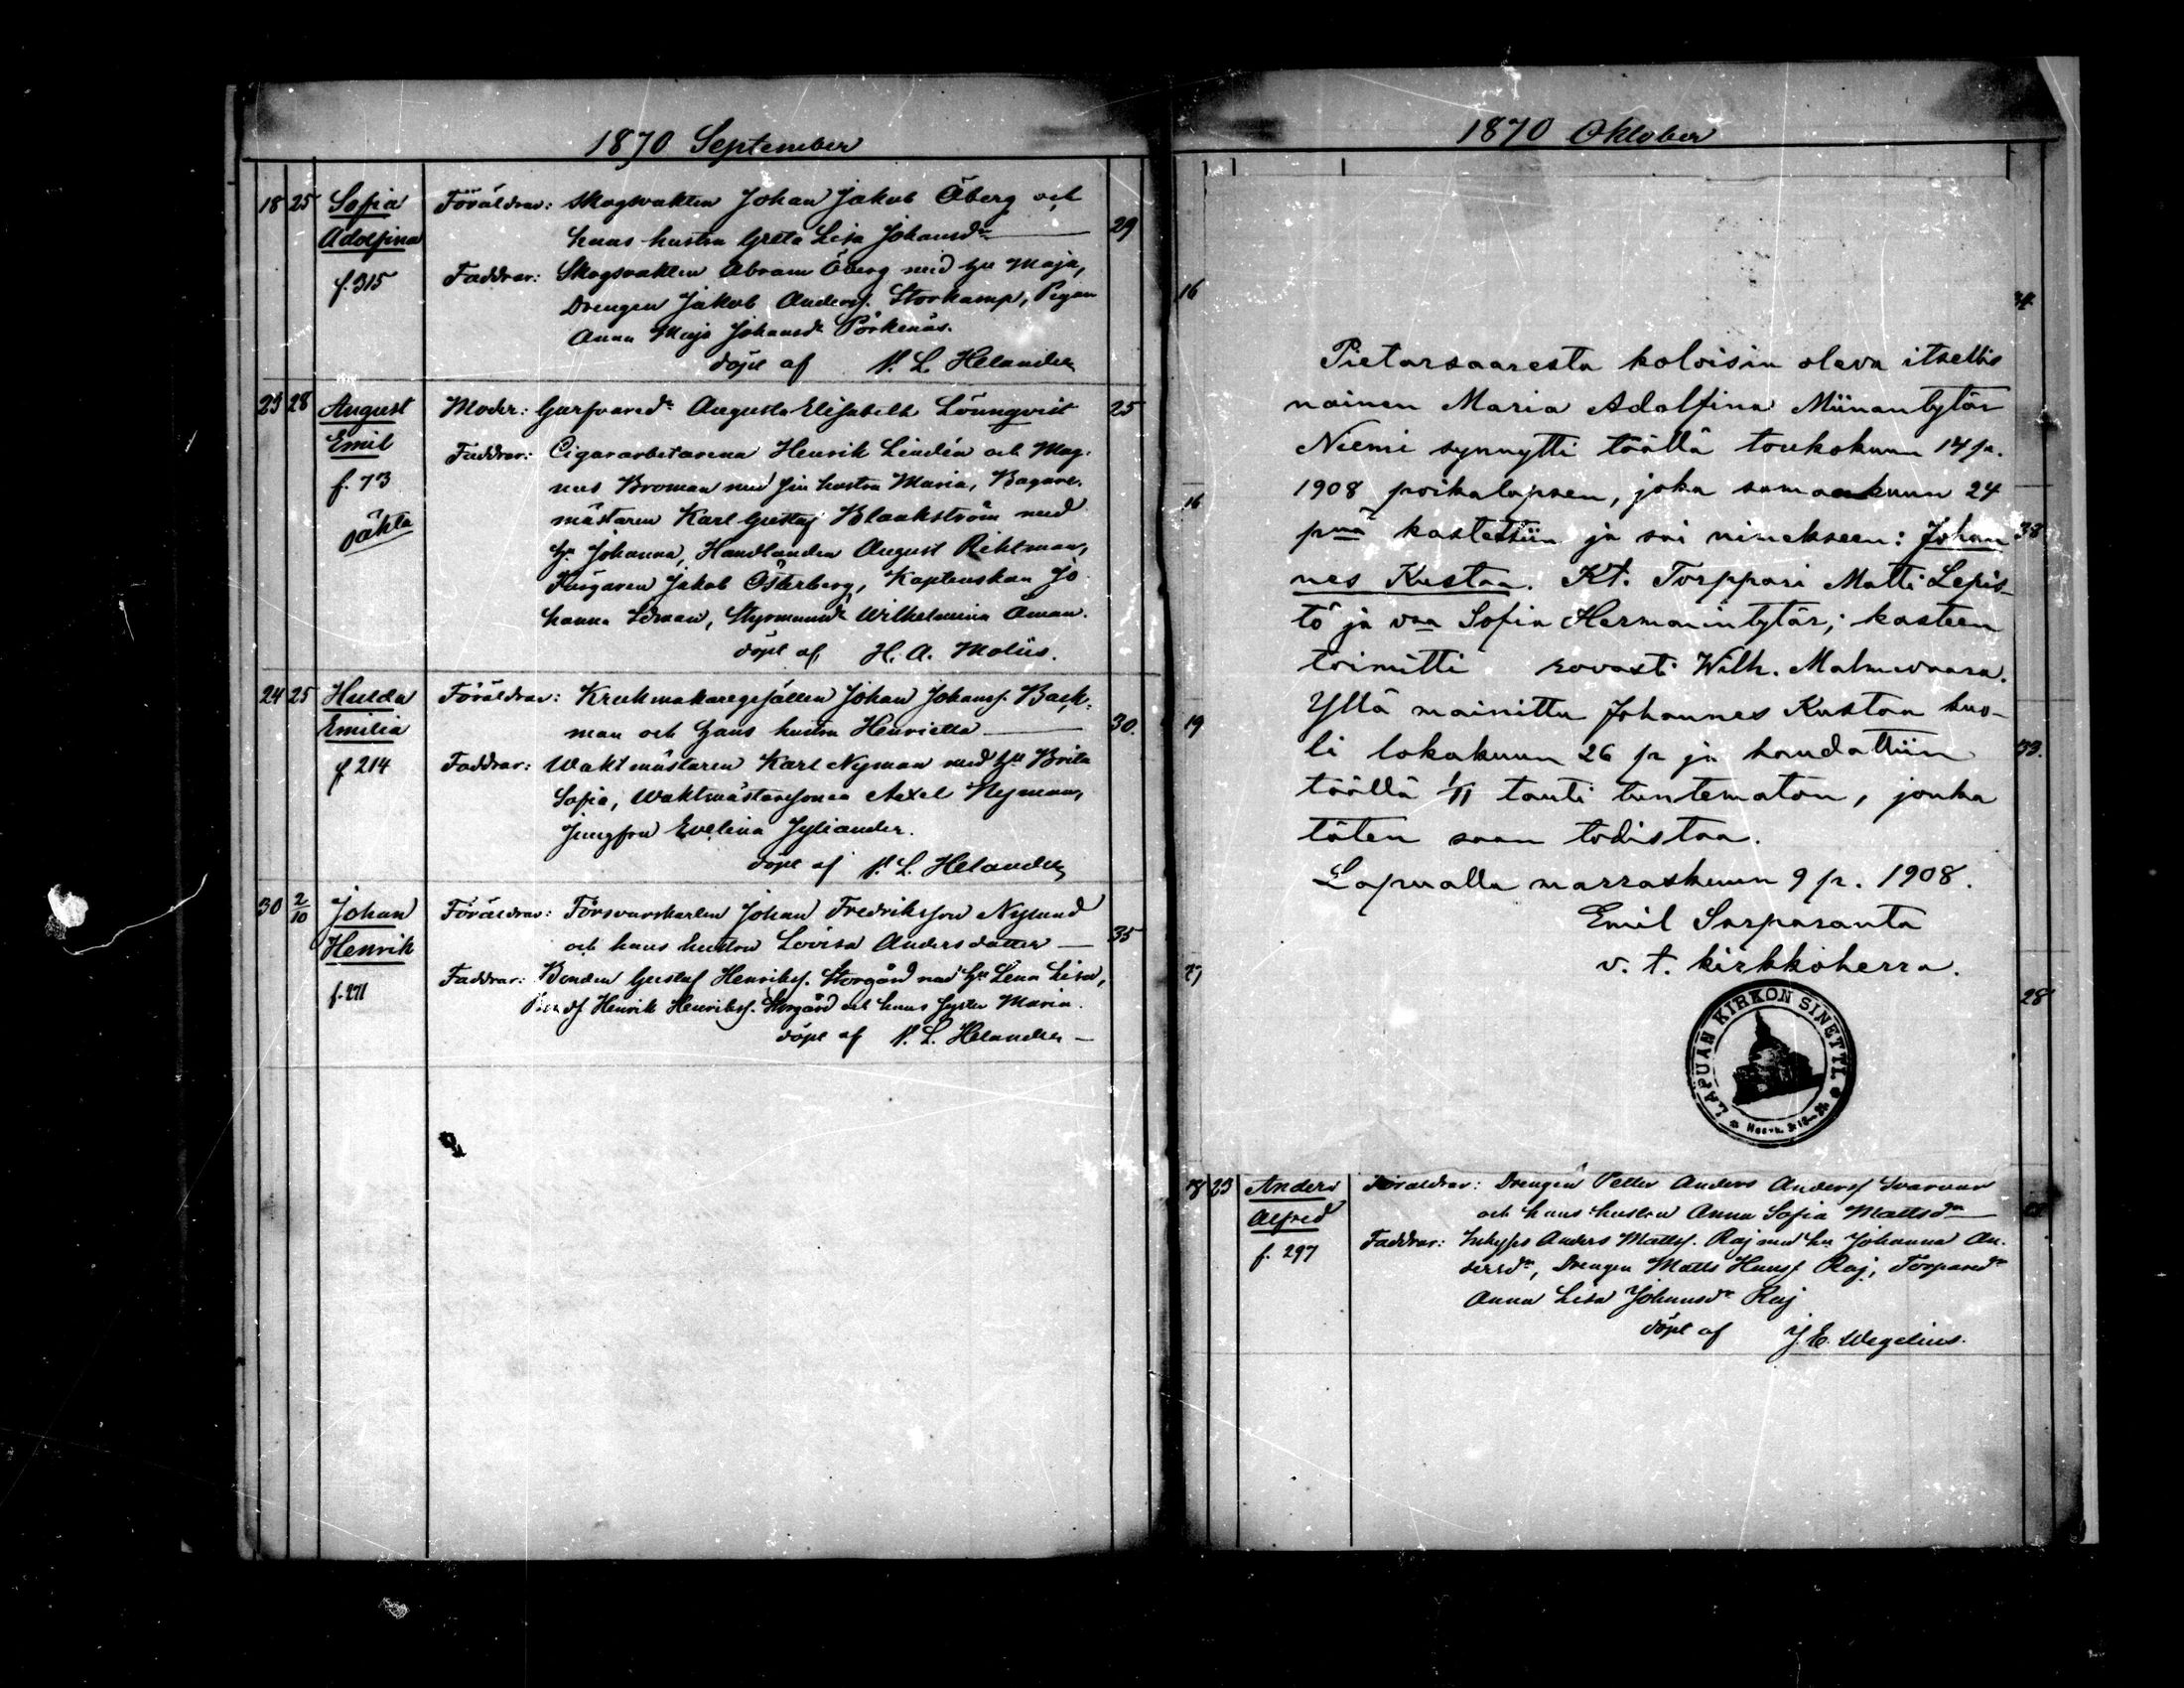 1870 September
18 25 Sofia Föräldrar: Skogvakten Johan Jakob Öberg och
Adolfina hans hustru Greta Lisa Johansdr 29
f. 315 Faddrar: Skogsvakten Abram Öberg med hu Maja,
Drengen Jakob Anderss. Storkamp, Pigan
Anna Maja Johansdr Pörkenäs.
döpt af P. L. Helander
23 28 August Moder: Garfvaredr Augusta Elisabeth Lönnqvist 25
Emil Faddrar: Cigararbetarena Henrik Lindén och Mag-
f. 73 nus Broman med sin hustru Maria, Bagare-
oäkta mästaren Karl Gustaf Blankström med
hu Johanna, Handlanden August Riktman,
Jakob Österberg, Kaptenskan Jo-
hanna Edman, Wilhelmina Öman.
döpt af H. A. Moliis.
24 25 Hulda Föräldrar: Krukmakaregesällen Johan Johanss. Back-
Emilia man och hans hustru Henrietta 30.
f. 214 Faddrar: Waktmästaren Karl Nyman med hu Brita
Sofia, Waktmästaresonen Axel Nyman,
Jungfru Evelina Jyliander.
döpt af P. L. Helander
30 2/10 Johan Föräldrar: Försvarskarlen Johan Fredriksson Nylund
Henrik och hans hustru Lovisa Andersdotter 35
f. 271 Faddrar: Bonden Gustaf Henrikss. Storgård med hu Lena Lisa,
Henrik Henrikss. Storgård och hans syster Maria.
döpt af P. L. Helander
1870 Oktober
16 34
Pietarsaaresta koloisin oleva itsellis
nainen Maria Adolfina Miinantytär
Niemi synnytti täällä toukokuun 14 p.
1908 poikalapsen, joka samankuun 24
16
pnä kastettiin ja sai nimekseen: Johan 33
nes Kustaa. Kt. Torppari Matti Lepis-
tö ja vaa Sofia Hermanintytär; kasteen
toimitti rovasti Wilh. Malmivaara.
19 Yllä mainittu Johannes Kustaa kuo-
li lokakuun 26 p ja haudattiin 33.
täällä 1/11 tauti tuntematon, jonka
täten saan todistaa.
Lapualla marraskuun 9 p. 1908.
Emil Sarparanta
27 v. t. kirkkoherra.
28
LAPUAN KIRKON SINETTI.
18 23 Anders Föräldrar: Drengen Petter Anders Anderss Svarvar
Alfred och hans hustru Anna Sofia Mattsdr
f. 297 Faddrar: Inhyses Anders Mattss. Raj med hu Johanna An-
dersdr, Drengen Matts Hanss Raj, Torparedr
Anna Lisa Johansdr Raj
döpt af J. E. Wegelius.